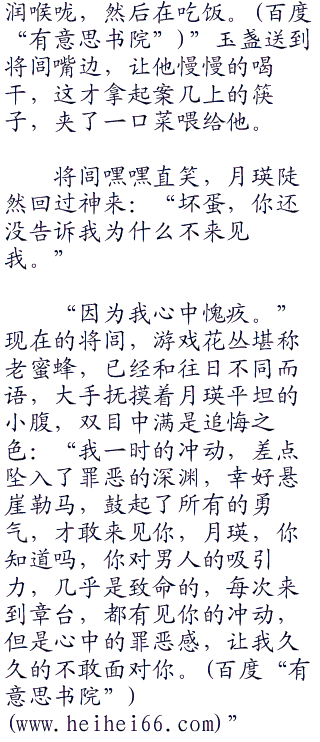 润喉咙，然后在吃饭。(百度
“有意思书院”)”玉盏送到
将闾嘴边，让他慢慢的喝
干，这才拿起案几上的筷
子，夹了一口菜喂给他。
将闾嘿嘿直笑，月瑛陡
然回过神来：“坏蛋，你还
没告诉我为什么不来见
我。”
“因为我心中愧疚。”
现在的将闾，游戏花丛堪称
老蜜蜂，已经和往日不同而
语，大手抚摸着月瑛平坦的
小腹，双目中满是追悔之
色：“我一时的冲动，差点
坠入了罪恶的深渊，幸好悬
崖勒马，鼓起了所有的勇
气，才敢来见你，月瑛，你
知道吗，你对男人的吸引
力，几乎是致命的，每次来
到章台，都有见你的冲动，
但是心中的罪恶感，让我久
久的不敢面对你。(百度“有
意思书院”)
(www.heihei66.com)”